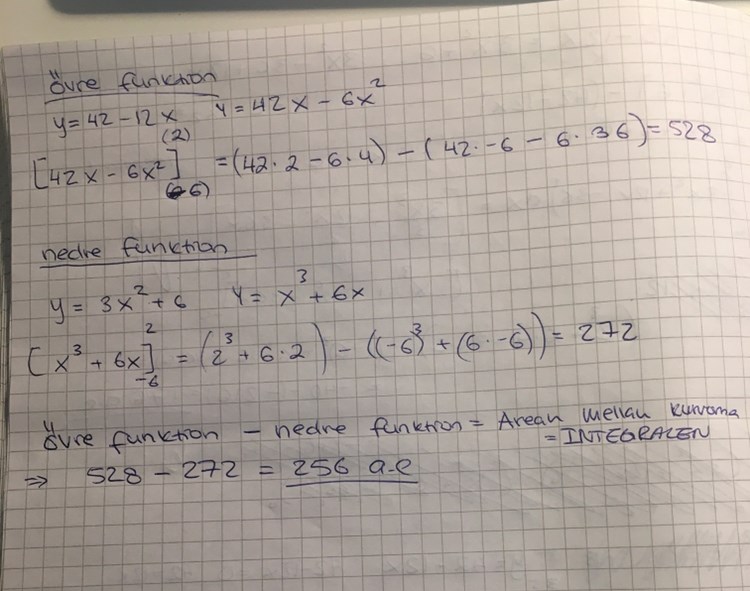 Övre funktion
y = 42 - 12x   Y = 42x - 6x²
[42x - 6x²] (2) (-6) = (42·2 - 6·4) - (42·-6 - 6·36) = 528
nedre funktion
y = 3x² + 6   Y = x³ + 6x
[x³ + 6x] 2 -6 = (2³ + 6·2) - ((-6)³ + (6·-6)) = 272
Övre funktion - nedre funktion = Arean mellan kurvorna
= INTEGRALEN
⇒ 528 - 272 = 256 a.e